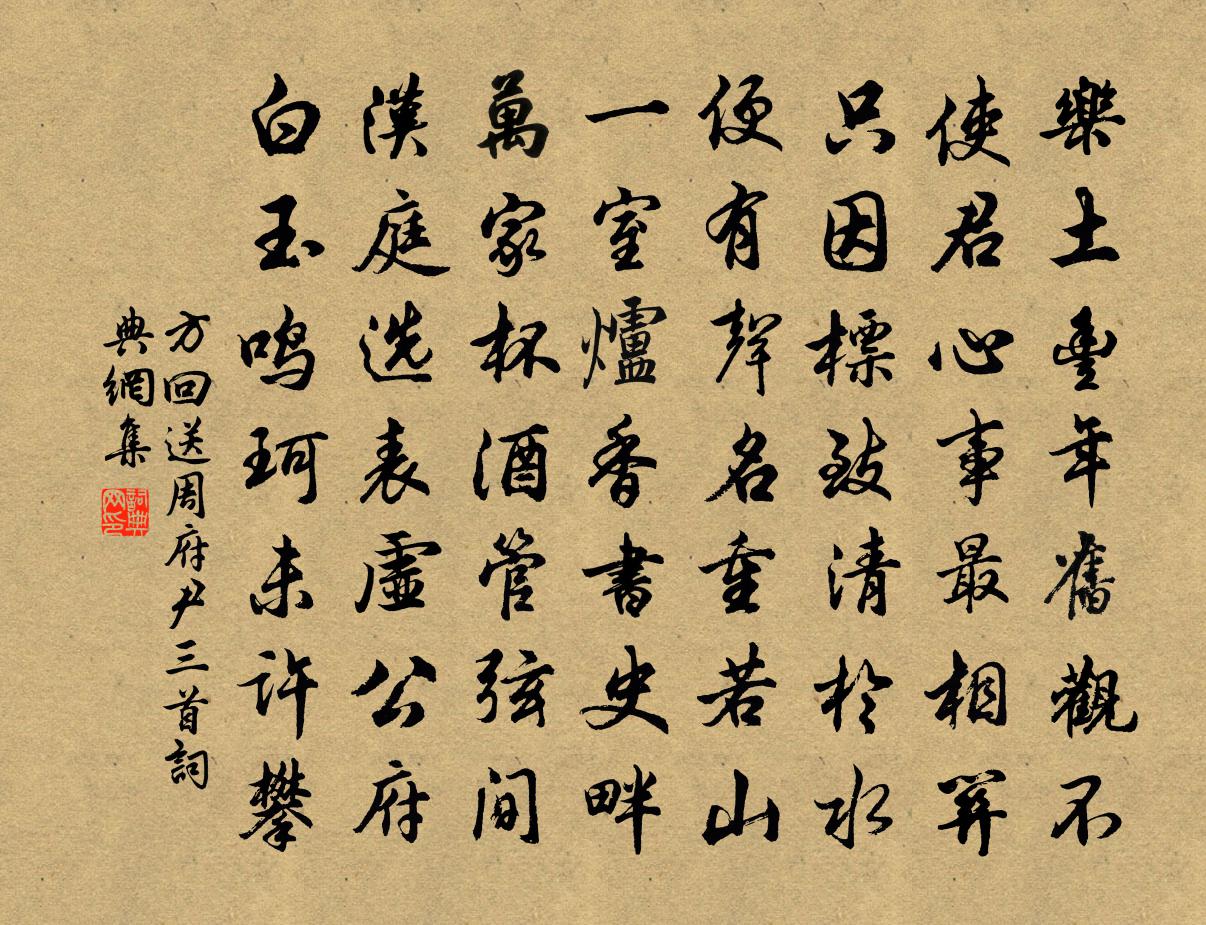 樂土豐年舊觀不
使君心事最相關
只因標致清於水
便有聲名重若山
一室爐香書史畔
萬家杯酒管弦間
漢庭選表虛公府
白玉鳴珂未許攀
方回送周府尹三首詞
典網集
詞典
网印